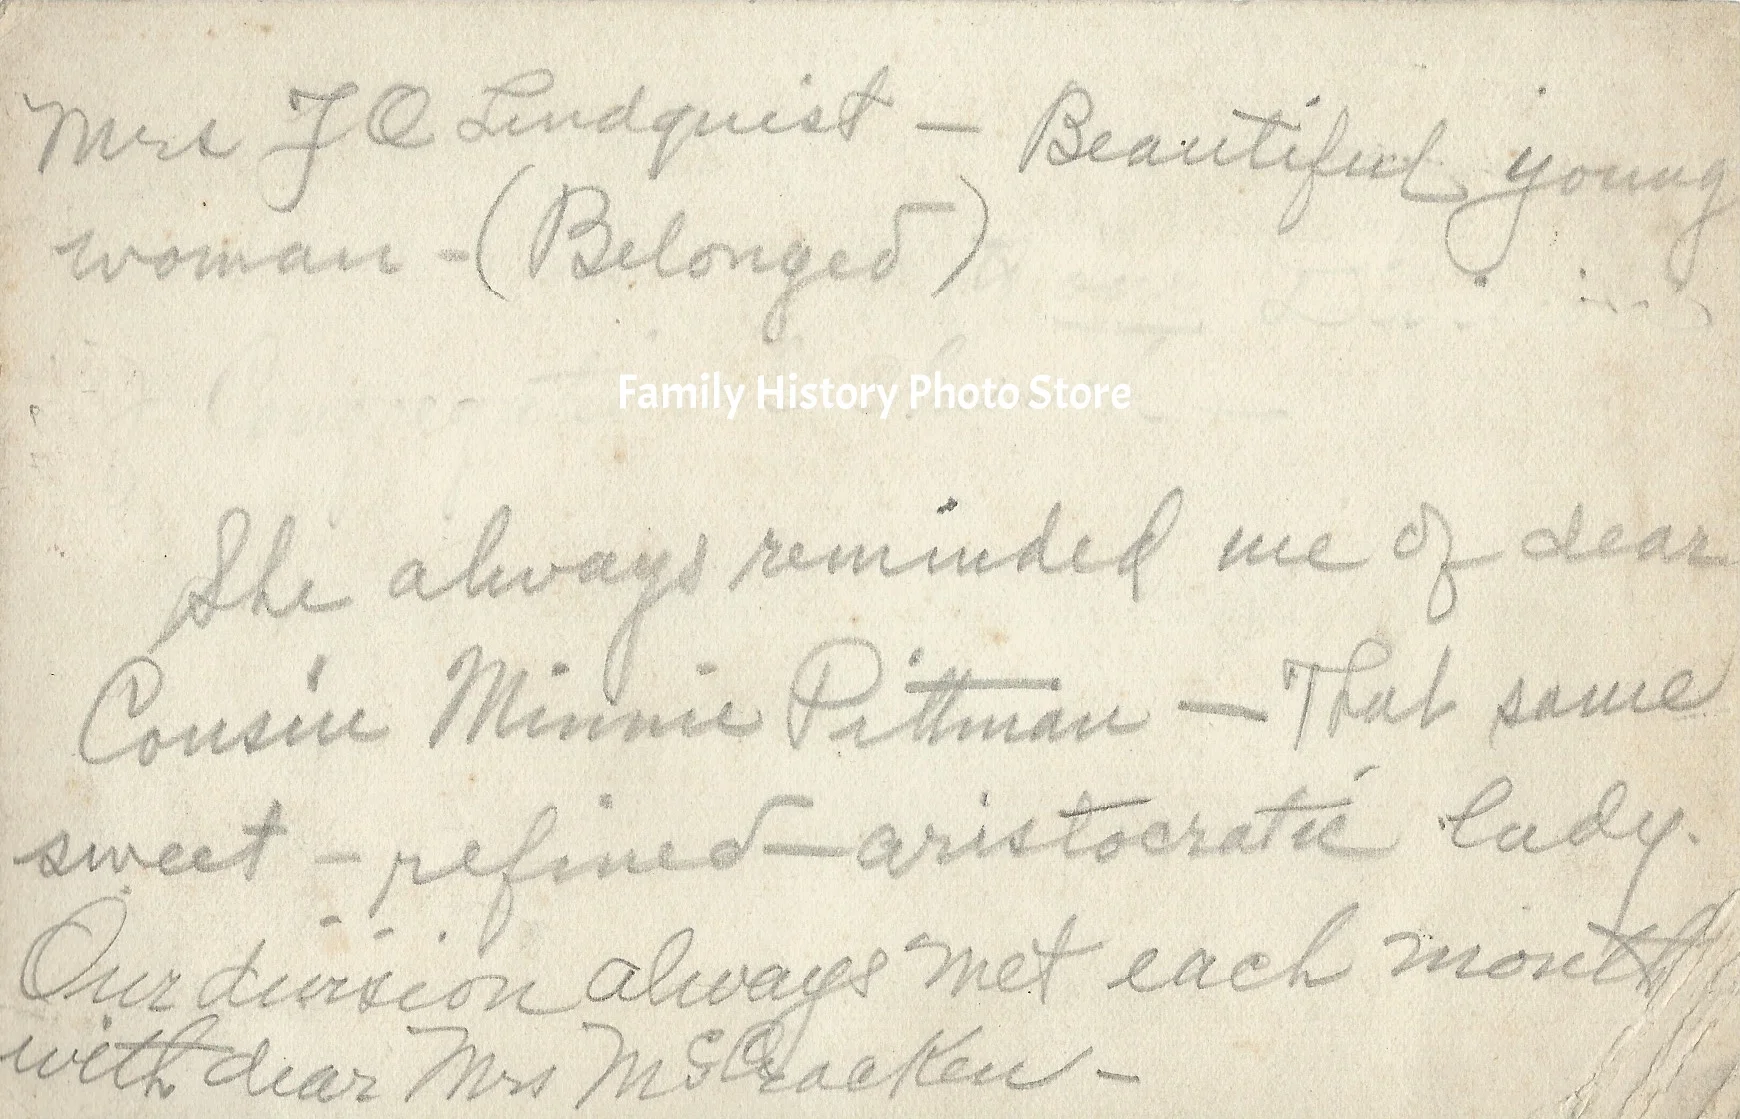 Mrs F O Lindquist — Beautiful young
woman - (Belonged)
Family History Photo Store
She always reminded me of dear
Cousin Minnie Pittman — That same
sweet - refined — aristocratic lady.
Our division always met each month
with dear Mrs McCracken -